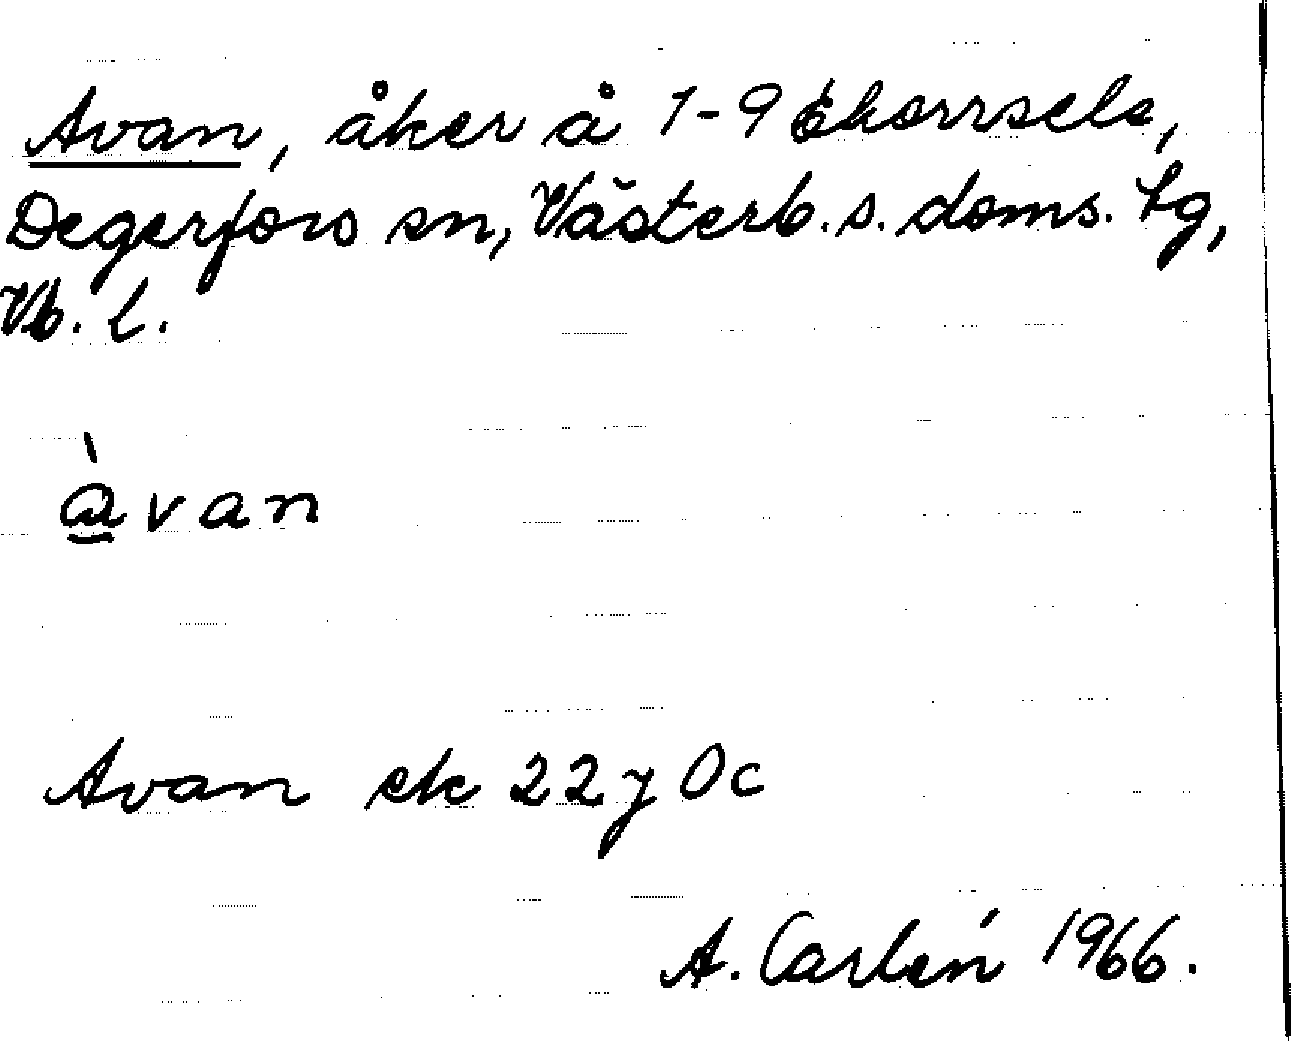 Avan, åker å 1-9 Ekorrsele,
Degerfors sn, Västerb. s. doms. Lg,
Vb. l.
àvan
Avan ek 22 y 0c
A. Carlén 1966.